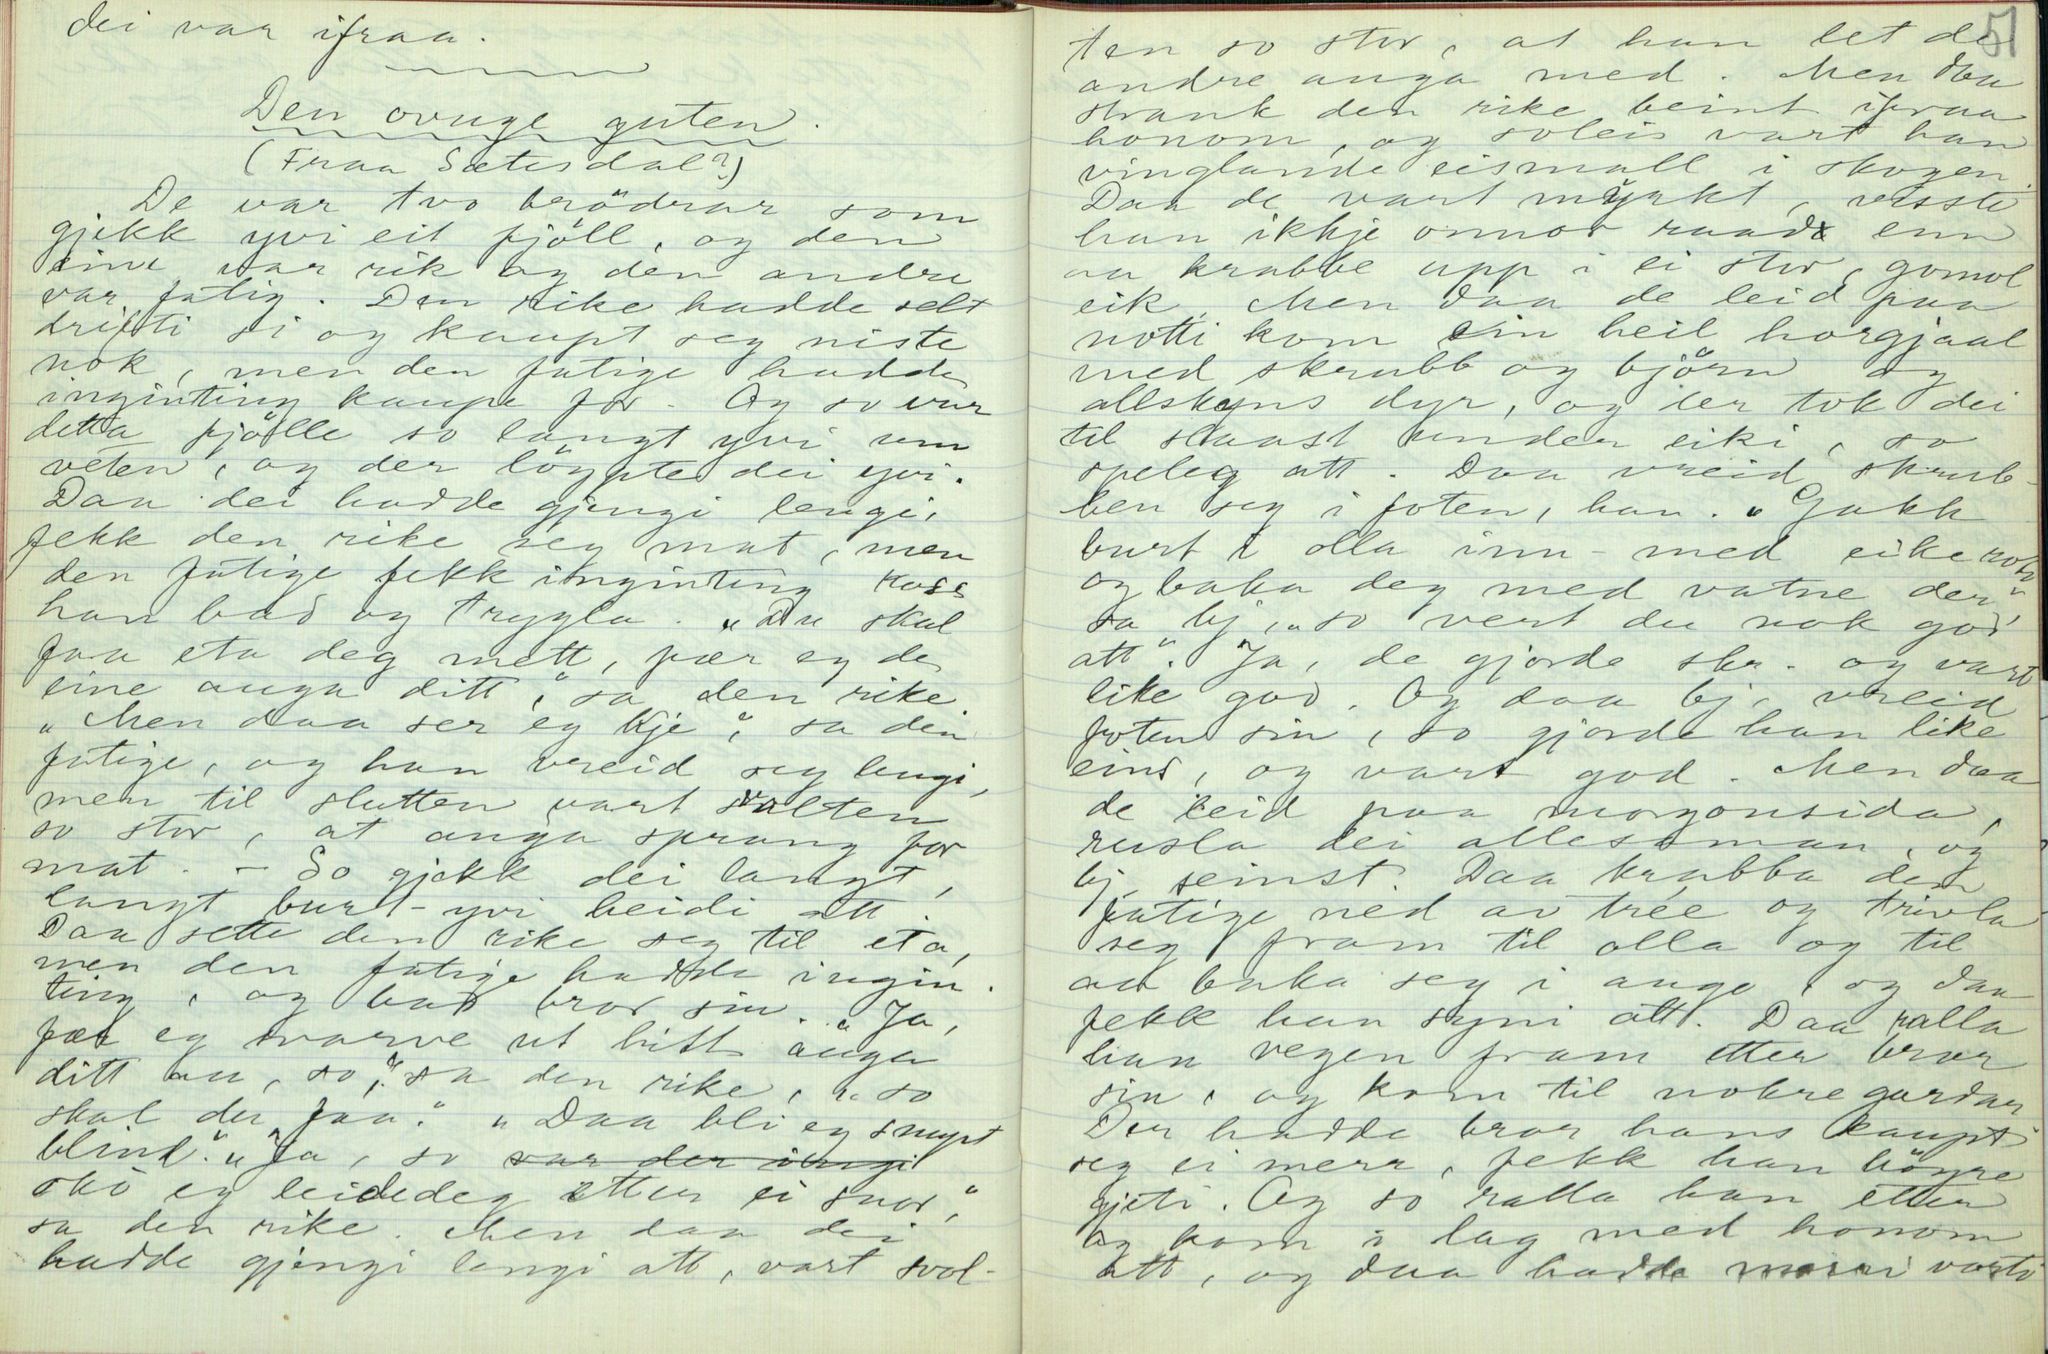 dei var ifraa.
Den ovuge guten.
(Fraa Sætesdal?)
De var tvo brödrar som
gjekk yvi eit fjöll, og den
eine var rik og den andre
var fatig. Den rike hadde selt
drifti si og kaupt seg niste
nok, men den fatige hadde
inginting kaupe for. Og so var
detta fjölle so langt yvi um
veten, og der löypte dei yvi.
Daa dei hadde gjengi lengi,
fekk den rike seg mat, men
den fatige fekk inginting koss
han bad og trygla. „Du skal
faa eta deg mett, fær eg de
eine auga ditt," sa den rike.
„Men daa ser eg kje", sa den
fatige, og han vreid seg lengi,
men til slutten vart svolten
so stor, at auga sprang for
mat. – So gjekk dei langt,
langt burt-yvi heidi att.
Daa sette den rike seg til eta,
men den fatige hadde ingin-
ting, og bad bror sin. „Ja,
fær eg svarve ut hitt auga
ditt au, so," sa den rike, „so
skal du faa." „Daa bli eg snuyt
blind." „Ja, so var der ingi
skö eg leide deg etter ei snor,"
sa den rike. Men daa dei
hadde gjengi lengi att, vart svol-
51
ten so stor, at han let de
andre auga med. Men daa
strauk den rike beint ifraa
honom, og soleis vart han
vinglande eismall i skogen.
Daa de vart myrkt, visste
han ikkje onnor raad enn
aa krabbe upp i ei stor, gomol
eik. Men daa de leid paa
notti kom ein heil horgjaal
med skrubb og björn og
allskyns dyr, og der tok dei
til slaast under eiki, so
speleg att. Daa vreid skrub-
ben seg i foten, han. „Gakk
burt i olla inn-med eikeroti
og baka deg med vatne der,"
sa bj, „so vert du nok god
att". Ja, de gjorde skr. og vart
like god. Og daa bj. vreid
foten sin, so gjorde han like
eins, og vart god. Men daa
de leid paa morgonsida,
rusla dei allessman, og
bj. seinst. Daa krabba den
fatige ned av tree og trivla
seg fram til olla og til
aa baka seg i augo, og daa
fekk han syni att. Daa ralla
han vegen fram etter bror
sin, og kom til nokre gardar
Der hadde bror hans kaupt
seg ei merr, fekk han höyre
gjeti. Og so ralla han etter
og kom i lag med honom
att, og daa hadde merri vorti